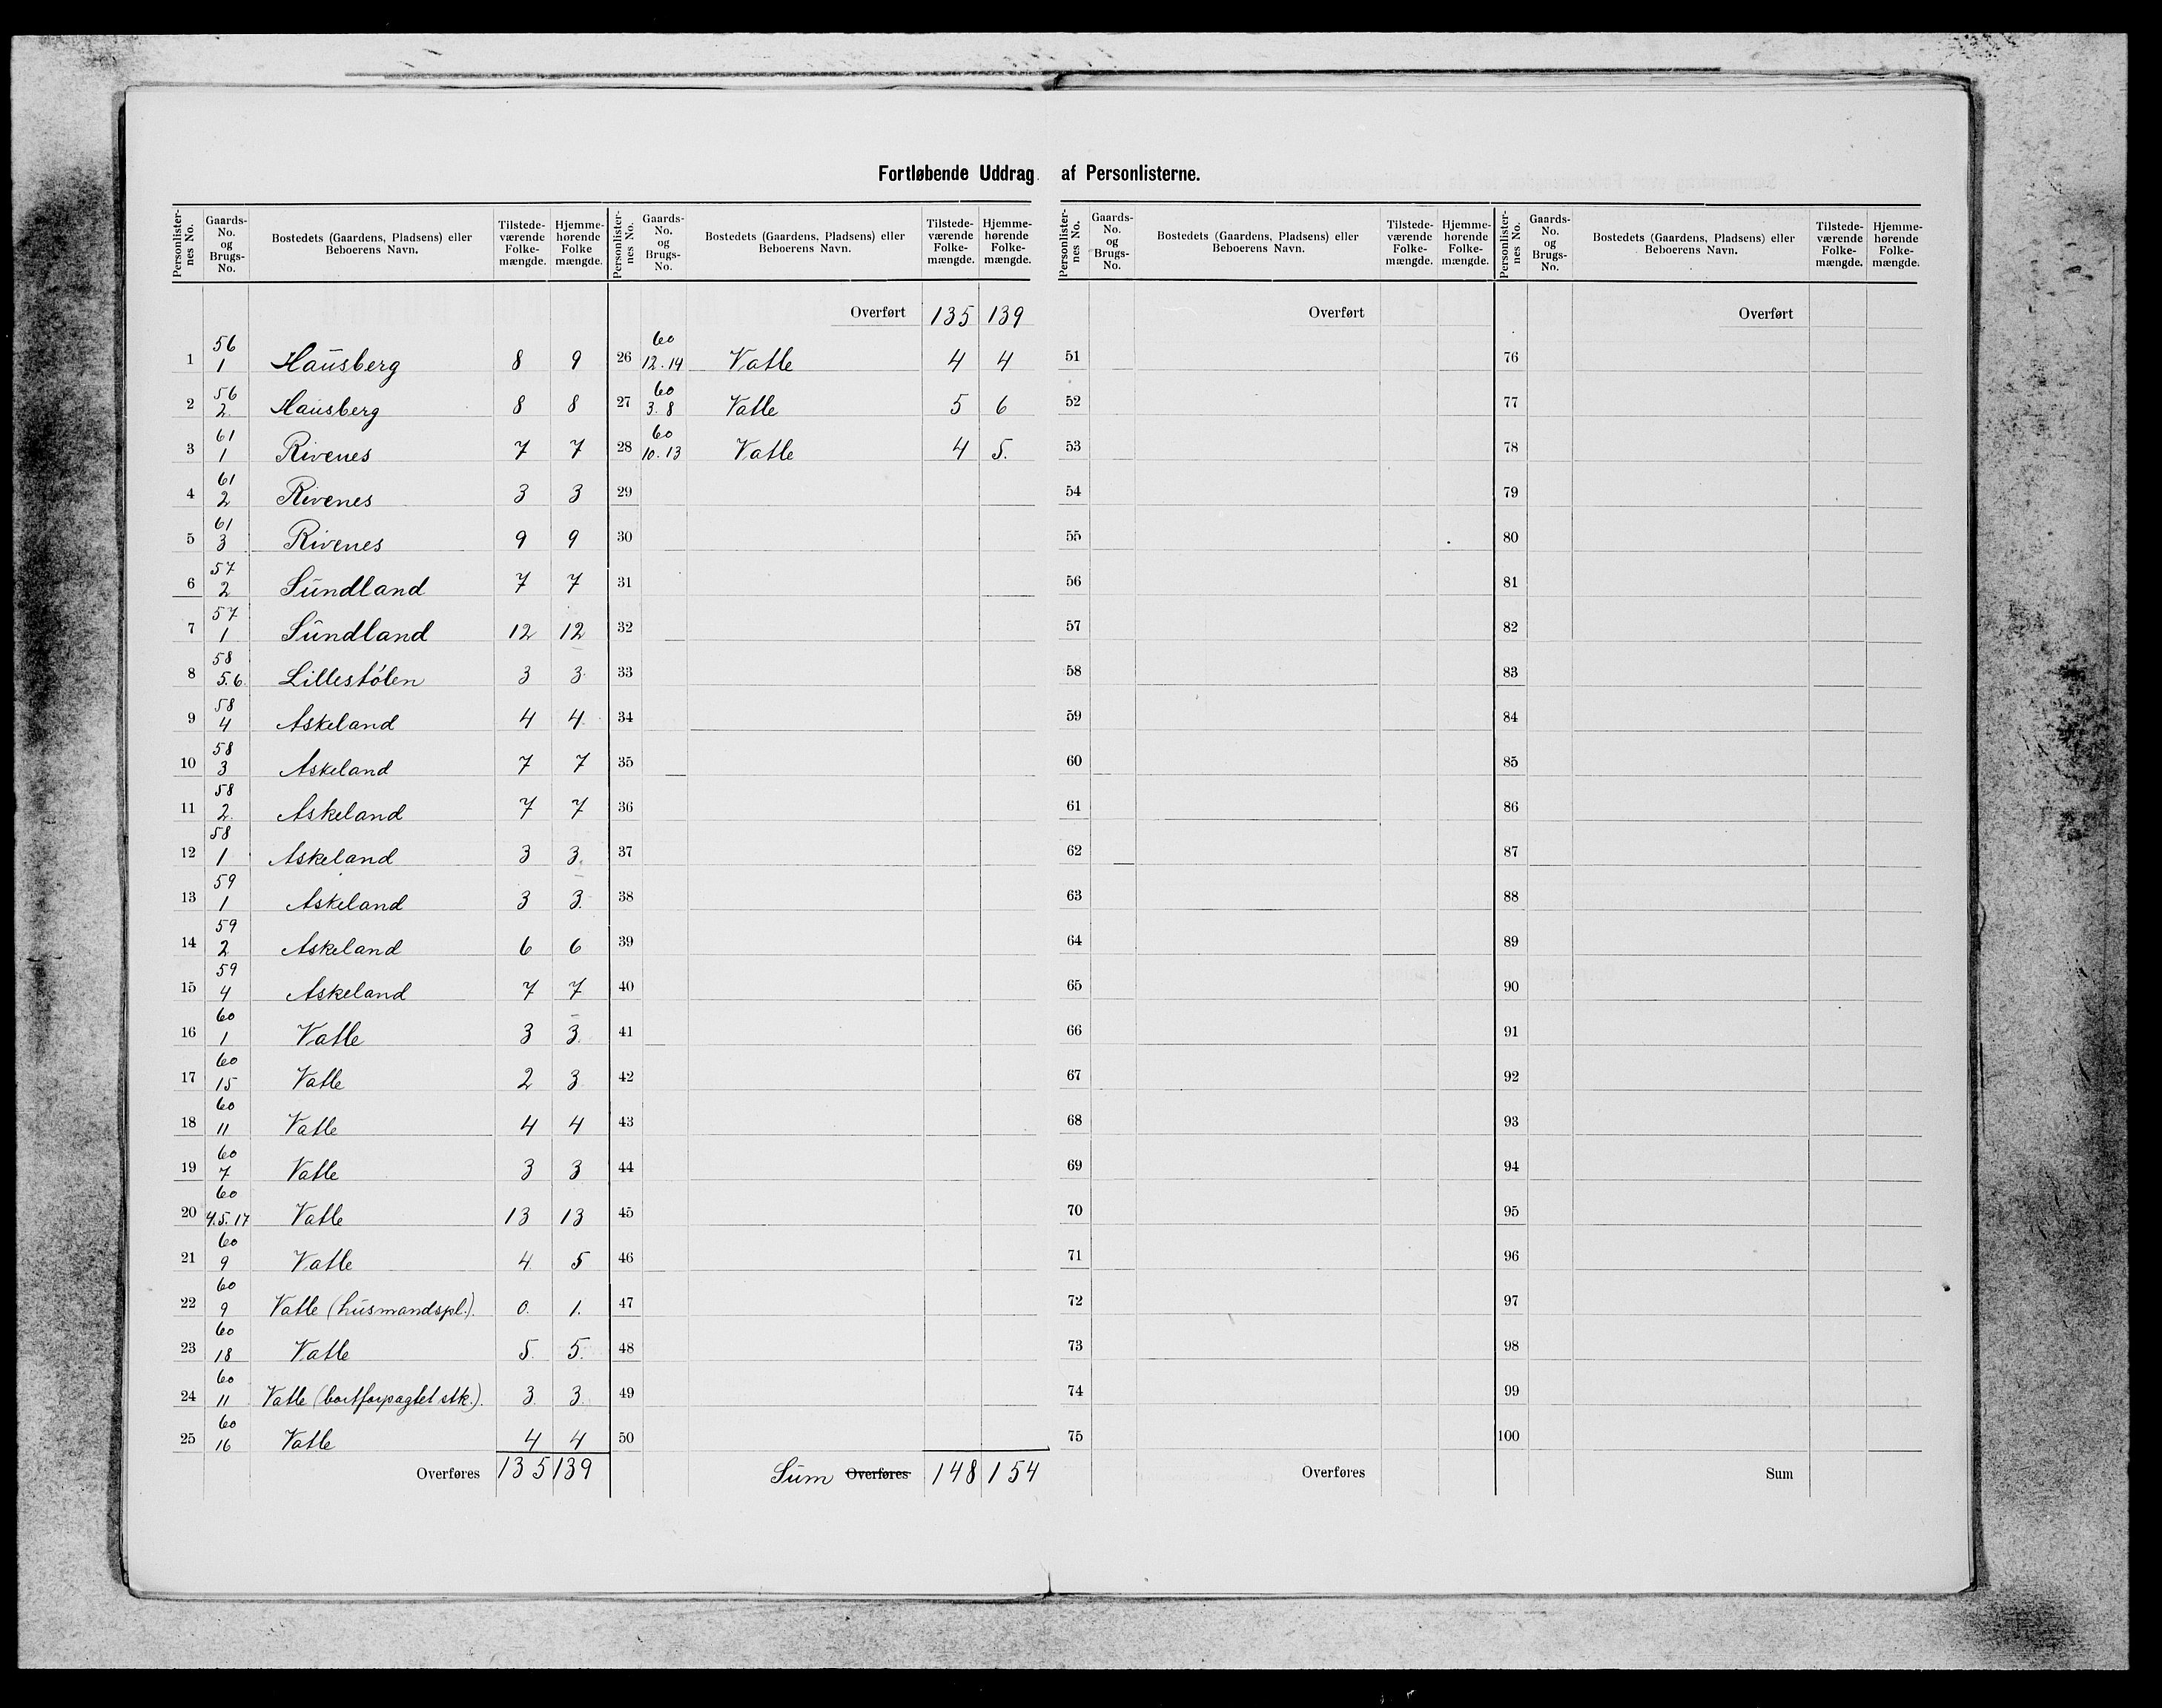 Fortløbende Uddrag af Personlisterne.
Personlister-nes No. | Gaards-No. og Brugs-No. | Bostedets (Gaardens, Pladsens) eller Beboerens Navn. | Tilstede-værende Folke-mængde. | Hjemme-hørende Folke mængde.
1 | 56 1 | Haŭsberg | 8 | 9
2 | 56 2. | Haŭsberg | 8 | 8
3 | 61 1 | Rivenes | 7 | 7
4 | 61 2 | Rivenes | 3 | 3
5 | 61 3 | Rivenes | 9 | 9
6 | 57 2 | Sŭndland | 7 | 7
7 | 57 1 | Sŭndland | 12 | 12
8 | 58 5.6. | Lillestølen | 3 | 3
9 | 58 4 | Askeland | 4 | 4
10 | 58 3 | Askeland | 7 | 7
11 | 58 2. | Askeland | 7 | 7
12 | 58 1 | Askeland | 3 | 3.
13 | 59 1 | Askeland | 3 | 3.
14 | 59 2 | Askeland | 6 | 6
15 | 59 4 | Askeland | 7 | 7
16 | 60 1 | Vatle | 3 | 3.
17 | 60 15 | Vatle | 2 | 3
18 | 60 11 | Vatle | 4 | 4
19 | 60 7 | Vatle | 3 | 3
20 | 60 4.5.17 | Vatle | 13 | 13
21 | 60 9 | Vatle | 4 | 5
22 | 60 9 | Vatle (hŭsmandspl.). | 0. | 1.
23 | 60 18 | Vatle | 5. | 5.
24 | 60 11 | Vatle (bortforpagtet stk.). | 3. | 3.
25 | 60 16 | Vatle | 4 | 4
Overføres | 135 | 139
Personlister-nes No. | Gaards-No. og Brugs-No. | Bostedets (Gaardens, Pladsens) eller Beboerens Navn. | Tilstede-værende Folke-mængde. | Hjemme-hørende Folke-mængde.
Overført | 135 | 139
26 | 60 12.14 | Vatle | 4 | 4
27 | 60 3.8 | Vatle | 5 | 6
28 | 60 10.13 | Vatle | 4 | 5.
29
30
31
32
33
34
35
36
37
38
39
40
41
42
43
44
45
46
47
48
49
50
Sŭm Overføres | 148 | 154
Personlister-nes No. | Gaards-No. og Brugs-No. | Bostedets (Gaardens, Pladsens) eller Beboerens Navn. | Tilstede-værende Folke-mængde. | Hjemme-hørende Folke-mængde.
Overført
51
52
53
54
55
56
57
58
59
60
61
62
63
64
65
66
67
68
69
70
71
72
73
74
75
Overføres
Personlister-nes No. | Gaards-No. og Brugs-No. | Bostedets (Gaardens, Pladsens) eller Beboerens Navn. | Tilstede-værende Folke-mængde. | Hjemme-hørende Folke-mængde.
Overført
76
77
78
79
80
81
82
83
84
85
86
87
88
89
90
91
92
93
94
95
96
97
98
99
100
Sum